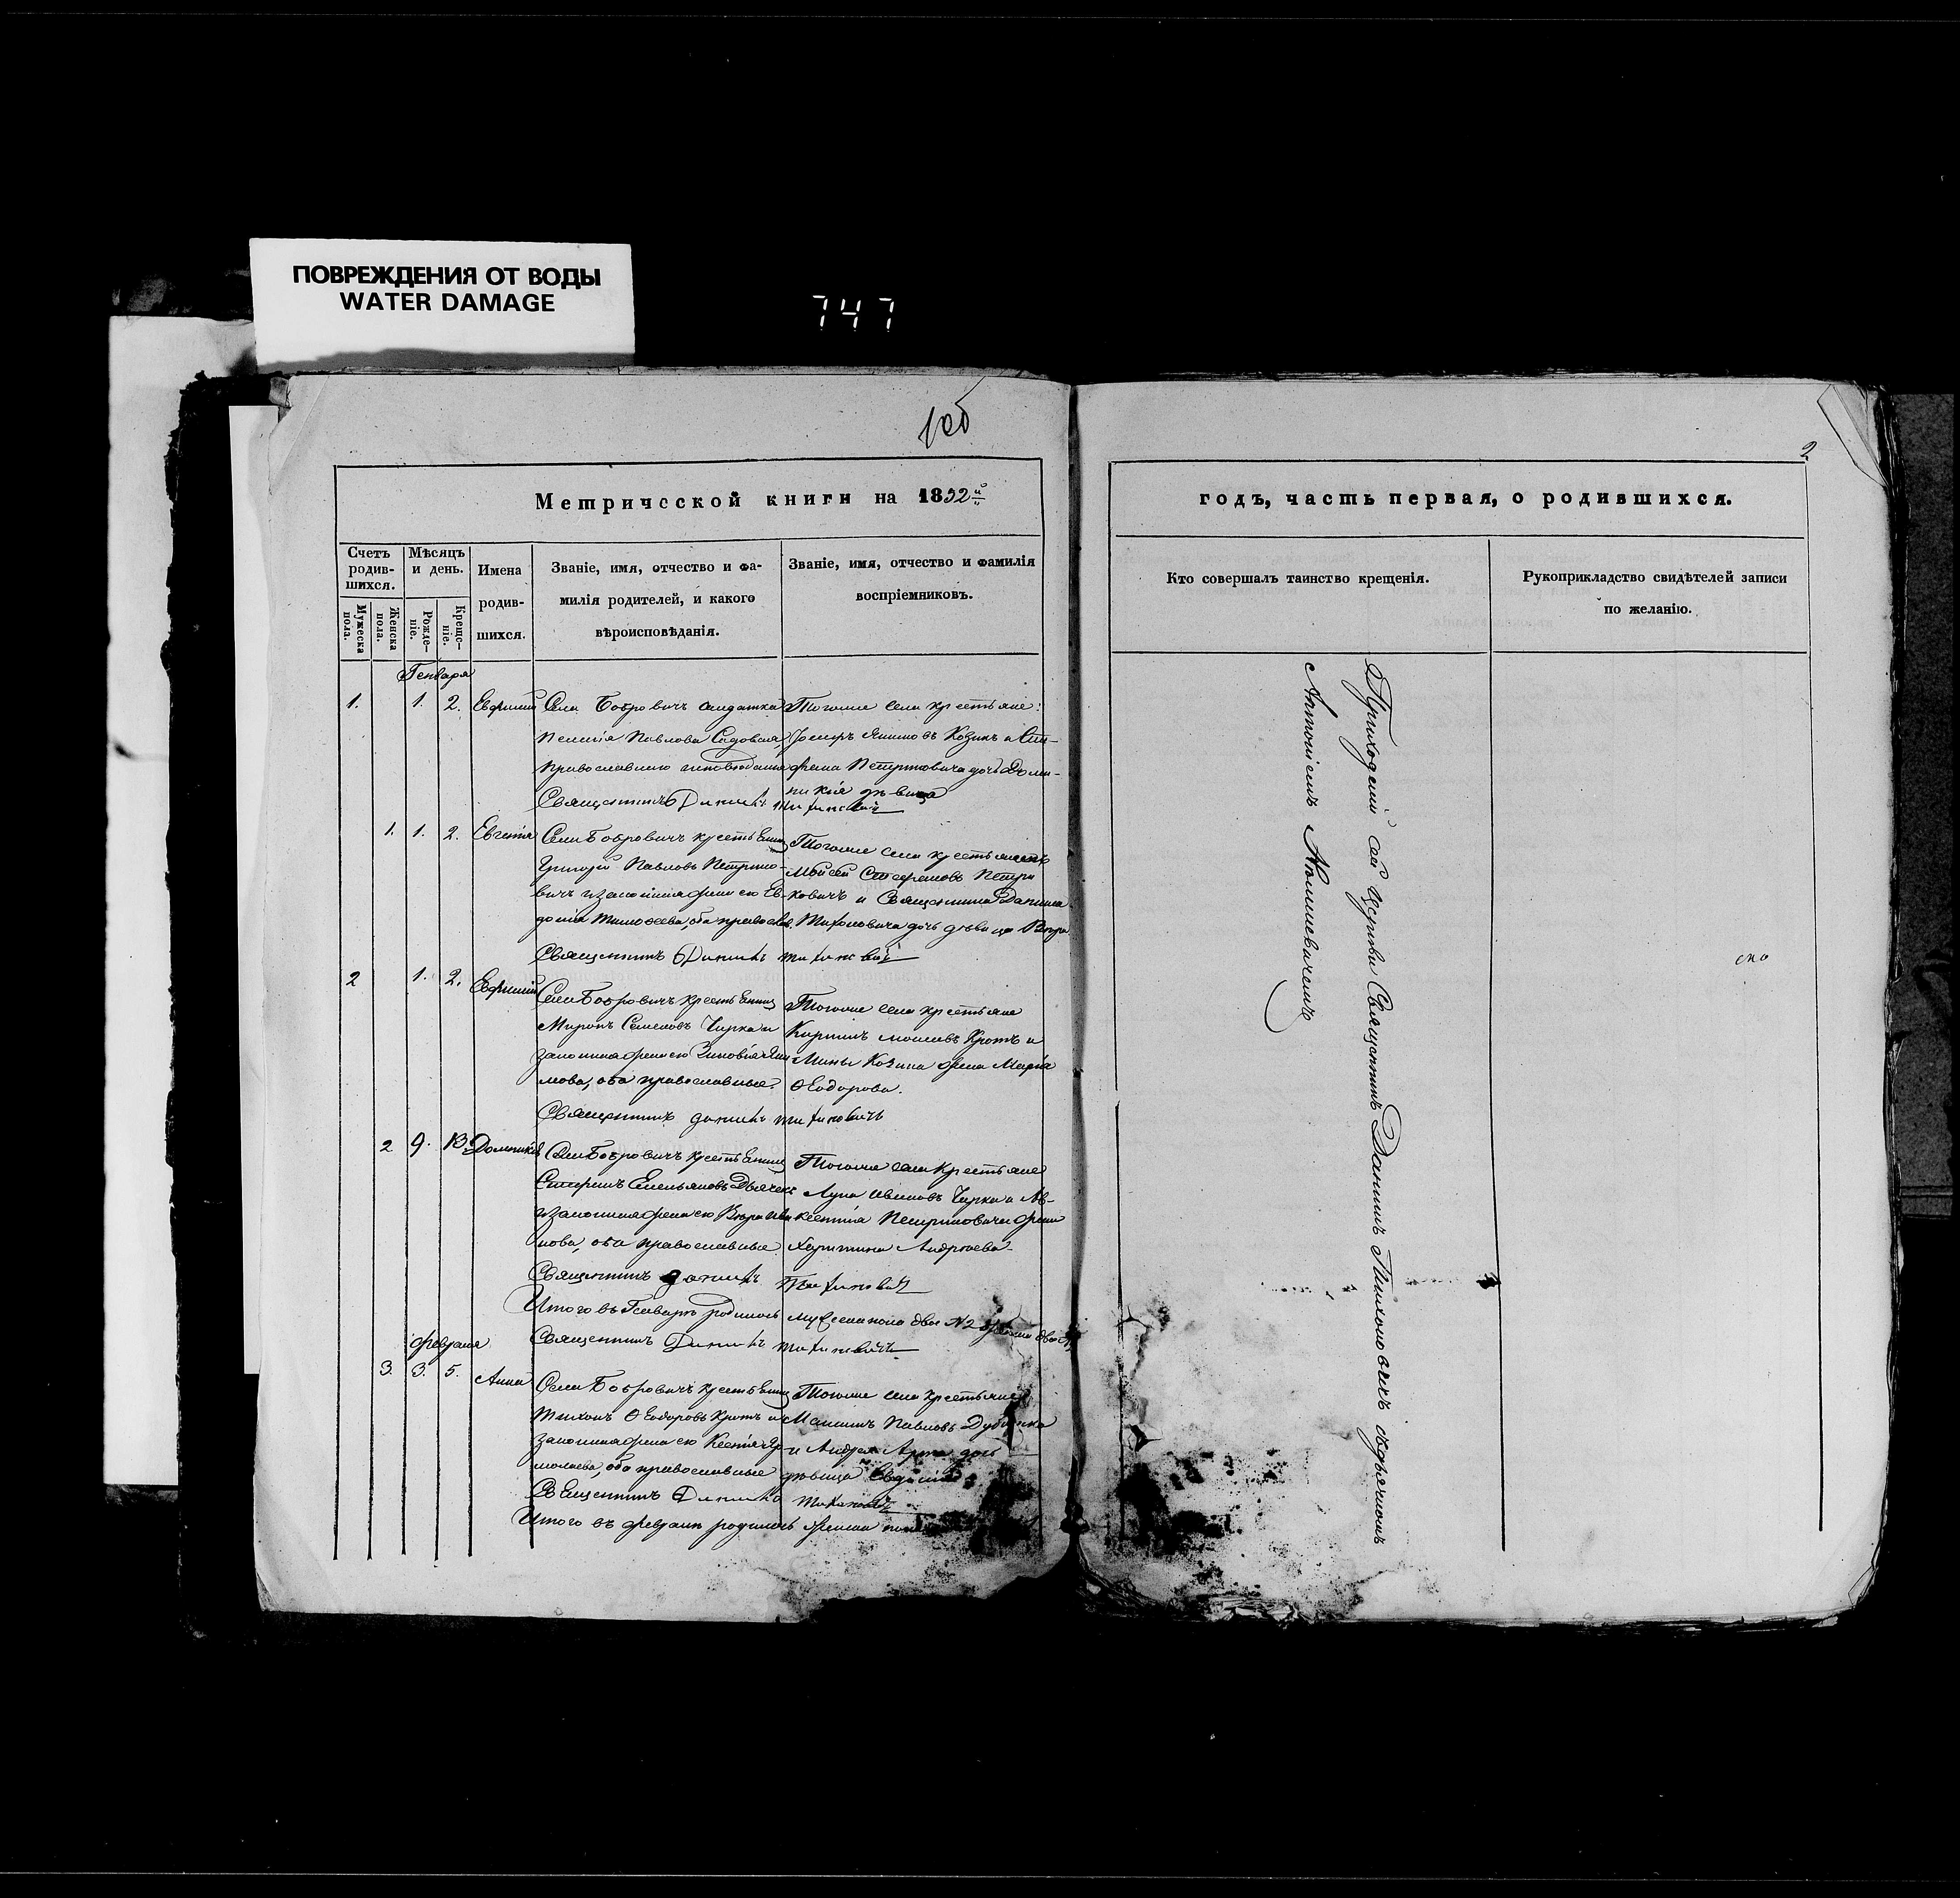 ПОВРЕЖДЕНИЯ ОТ ВОДЫ
WATER DAMAGE
747
1об
2.
Метрической книги на 1892й
годъ, часть первая, о родившихся.
Счетъ родив-шихся.
Мужеска пола.
Женска пола.
Мѣсяцъ и день.
Рожде-ніе.
Креще-ніе.
Имена родив-шихся.
Званіе, имя, отчество и фа-
милія родителей, и какого
вѣроисповѣданія.
Званіе, имя, отчество и фамилія
воспріемниковъ.
Кто совершалъ таинство крещенія.
Рукоприкладство свидѣтелей записи
по желанію.
Генваря
1. 1. 2. Евфимій
Села Бобровичъ солдатка
Павлова Садовская,
Православнаго исповѣданія
Священникъ Даніилъ Тихоновичъ
Тогоже села крестьяне:
Іосифъ Якимовъ Козикъ и Сте-
фана Петриковича дочь Доми-
никія дѣвица
1. 1. 2. Евгенія
Села Бобровичъ крестьянинъ
Григорій Павловъ Петрико-
вичъ и законная жена его Ев-
докія Тимоѳеева, оба правосла.
Священникъ Даніилъ Тихоновичъ
Тогоже села крестьянинъ
Моисей Стефановъ Петри
ковичъ и Священника Даніила
Тихоновича дочь дѣвица Вѣра
2 1. 2. Евфимій
Села Бобровичъ крестьянинъ
Миронъ Семеновъ Чирка и
законная жена его Зиновія Яки
мова, оба православные.
Священникъ Даніилъ Тихоновичъ
Тогоже села крестьяне
Кириллъ Моисеевъ Кротъ и
Мины Козика жена Марія
Ѳеодорова.
2 9. 13. Домникія
Села Бобровичъ крестьянинъ
Стефанъ Емельяновъ Дьячекъ
и законная жена его Вѣра Ива
нова, оба православные.
Священникъ Даніилъ Тихоновичъ
Тогоже села крестьяне
Лука Ивановъ Чирка и Ав-
ксентія Петриковича жена
Харитина Андреева.
Итого въ Генварѣ родилось мужеска пола двое №2 женска двое
Священникъ Даніилъ Тихоновичъ
Февраля
3. 3. 5. Анна
Села Бобровичъ крестьянинъ
Тихонъ Ѳеодоровъ Кротъ и
законная жена его Ксенія Ер-
молаева, оба православные
Священникъ Даніилъ Тихоновичъ
Тогоже села крестьяне
Максимъ Павловъ
и Андрея дочь
дѣвица
Итого въ Февралѣ родилось женска
Приходскій сей церкви Священникъ Даніилъ Тихоновичъ съ дьячкомъ
Антоніемъ